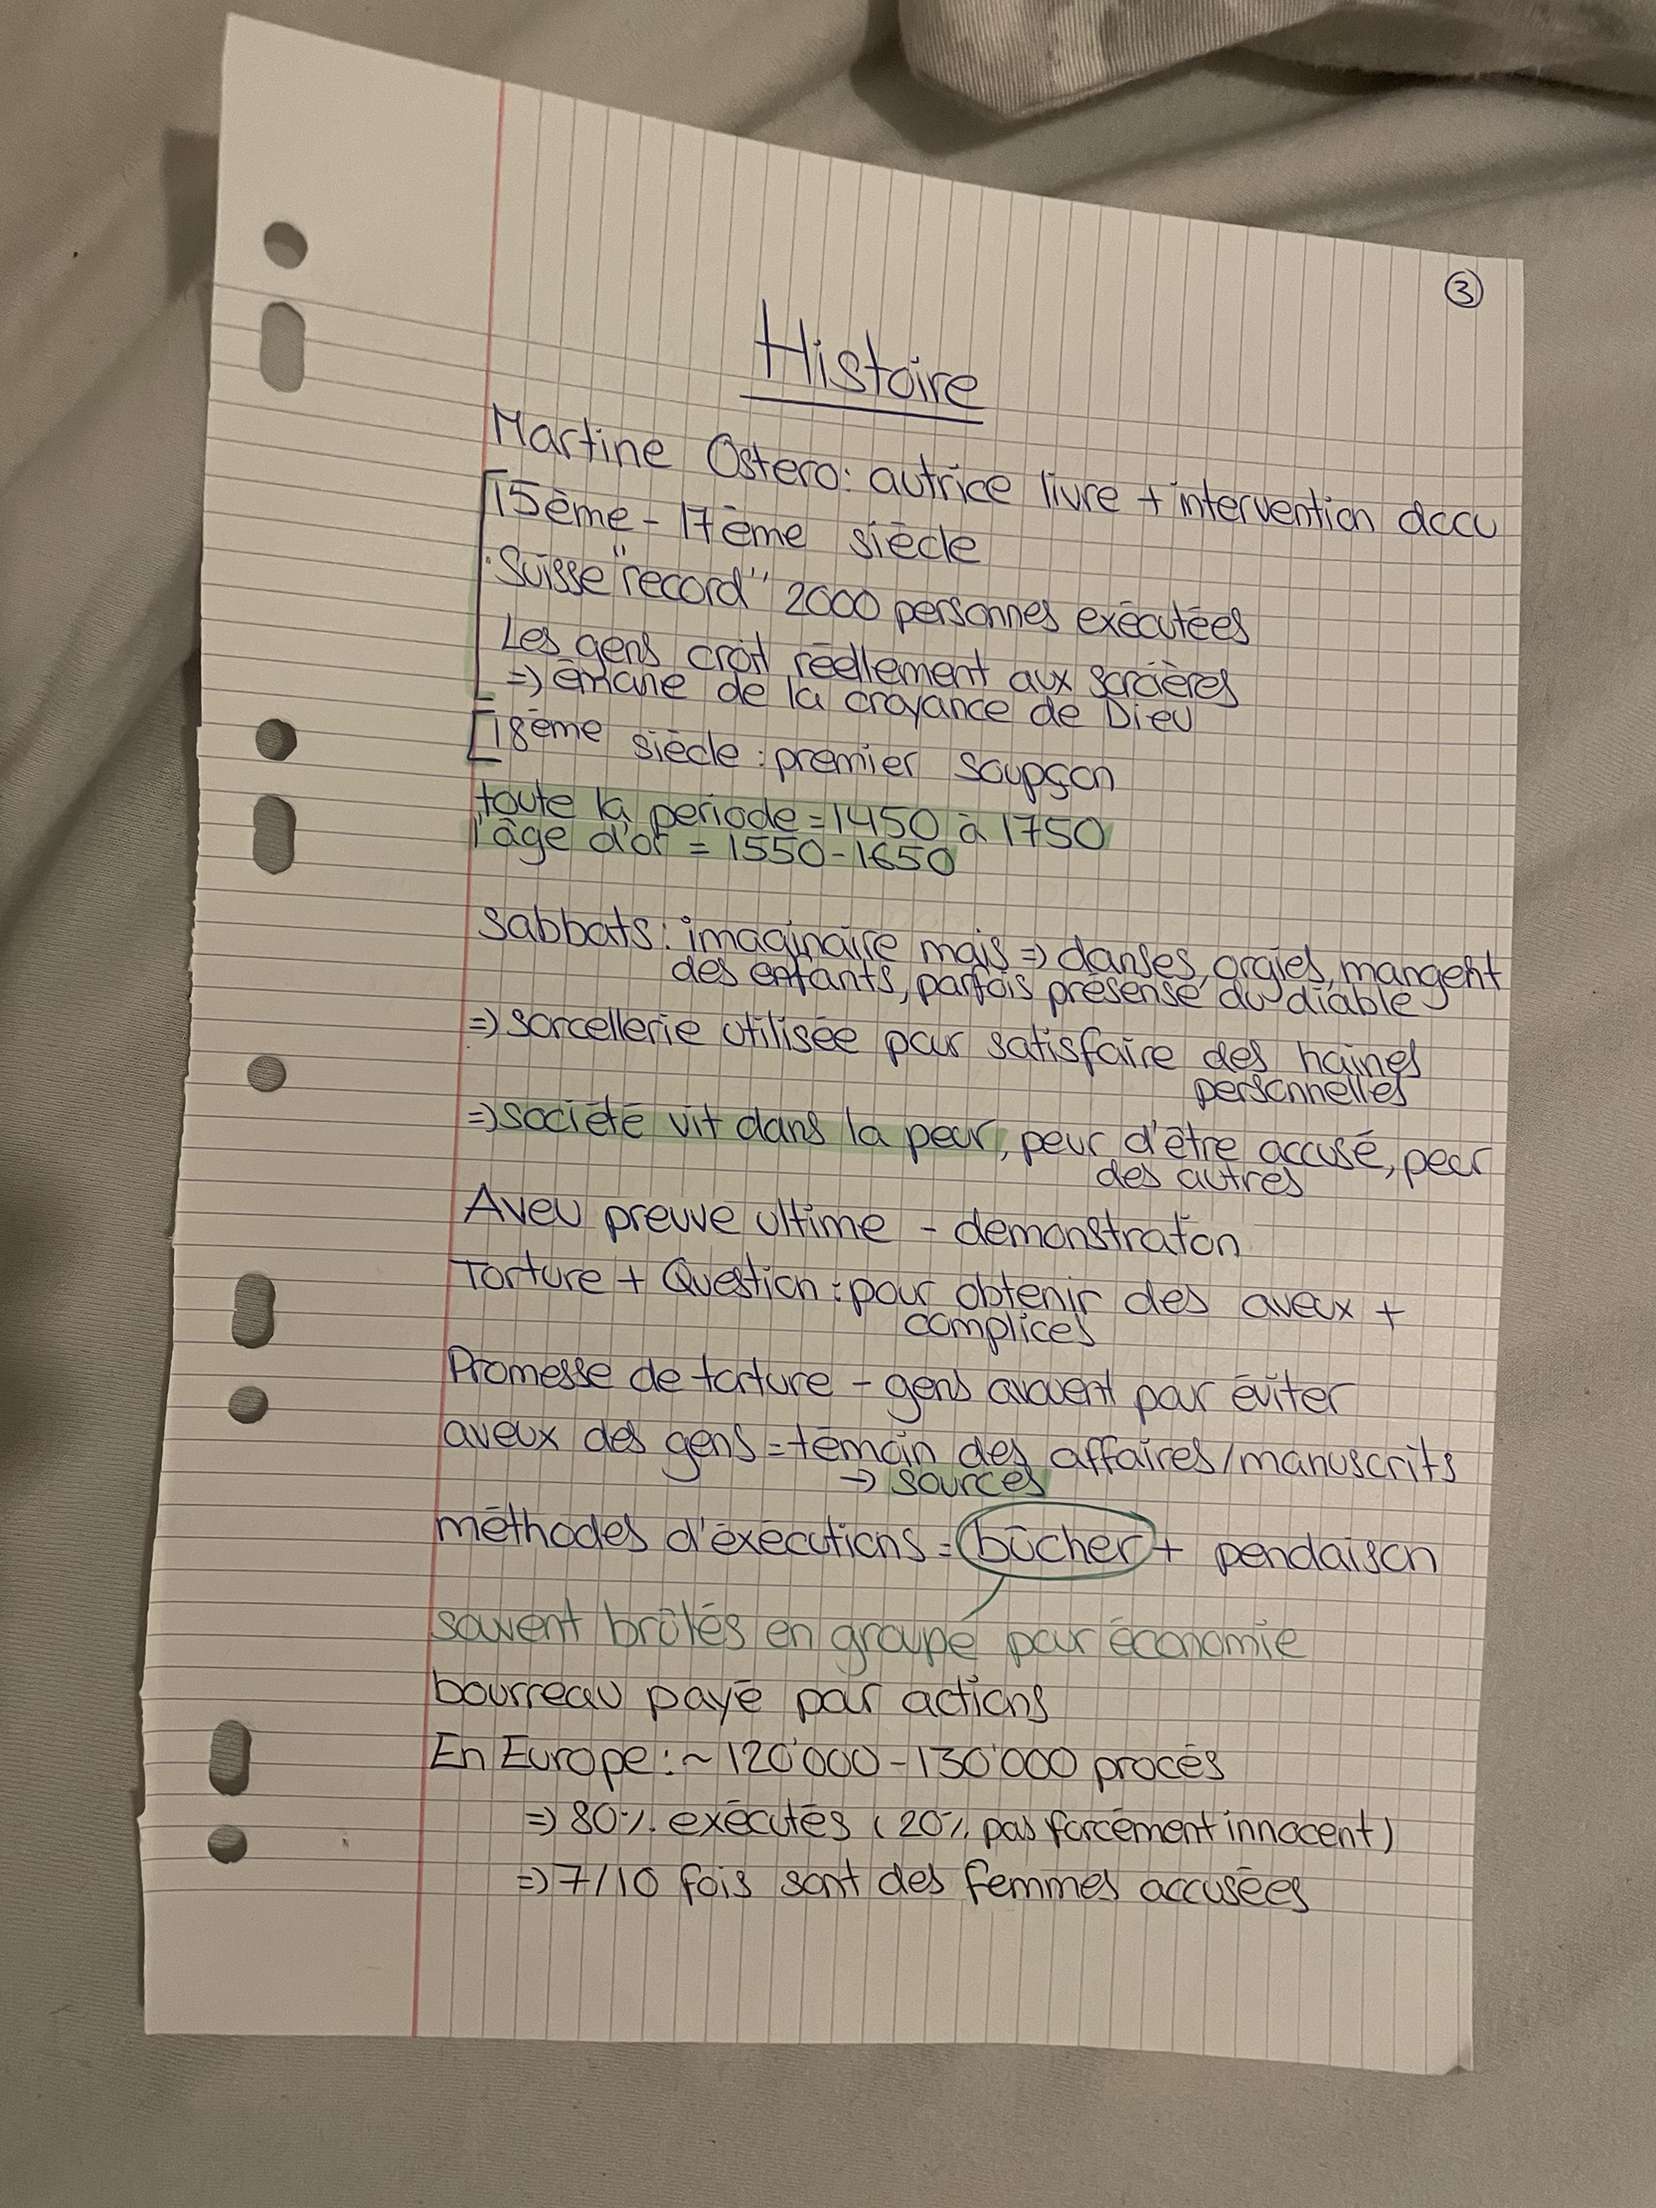 ③
Histoire
Martine Ostero: autrice livre + intervention docu
15ème - 17ème siècle
Suisse "record" 2000 personnes exécutées
Les gens croit réellement aux sorcières
=> émane de la croyance de Dieu
18ème siècle : premier soupçon
toute la période = 1450 à 1750
l'âge d'or = 1550-1650
sabbats : imaginaire mais => danses, orgies, mangent
des enfants, parfois présense du diable
=> sorcellerie utilisée pour satisfaire des haines
personnelles
=> société vit dans la peur, peur d'être accusé, peur
des autres
Aveu preuve ultime - demonstration
Torture + Question : pour obtenir des aveux +
complices
Promesse de torture - gens avouent pour éviter
aveux des gens = témoin des affaires/manuscrits
-> sources
méthodes d'éxécutions = bûcher + pendaison
souvent brûlés en groupe par économie
bourreau payé par actions
En Europe : ~ 120'000 - 130'000 procès
=> 80% exécutés (20% pas forcément innocent)
=> 7/10 fois sont des femmes accusées